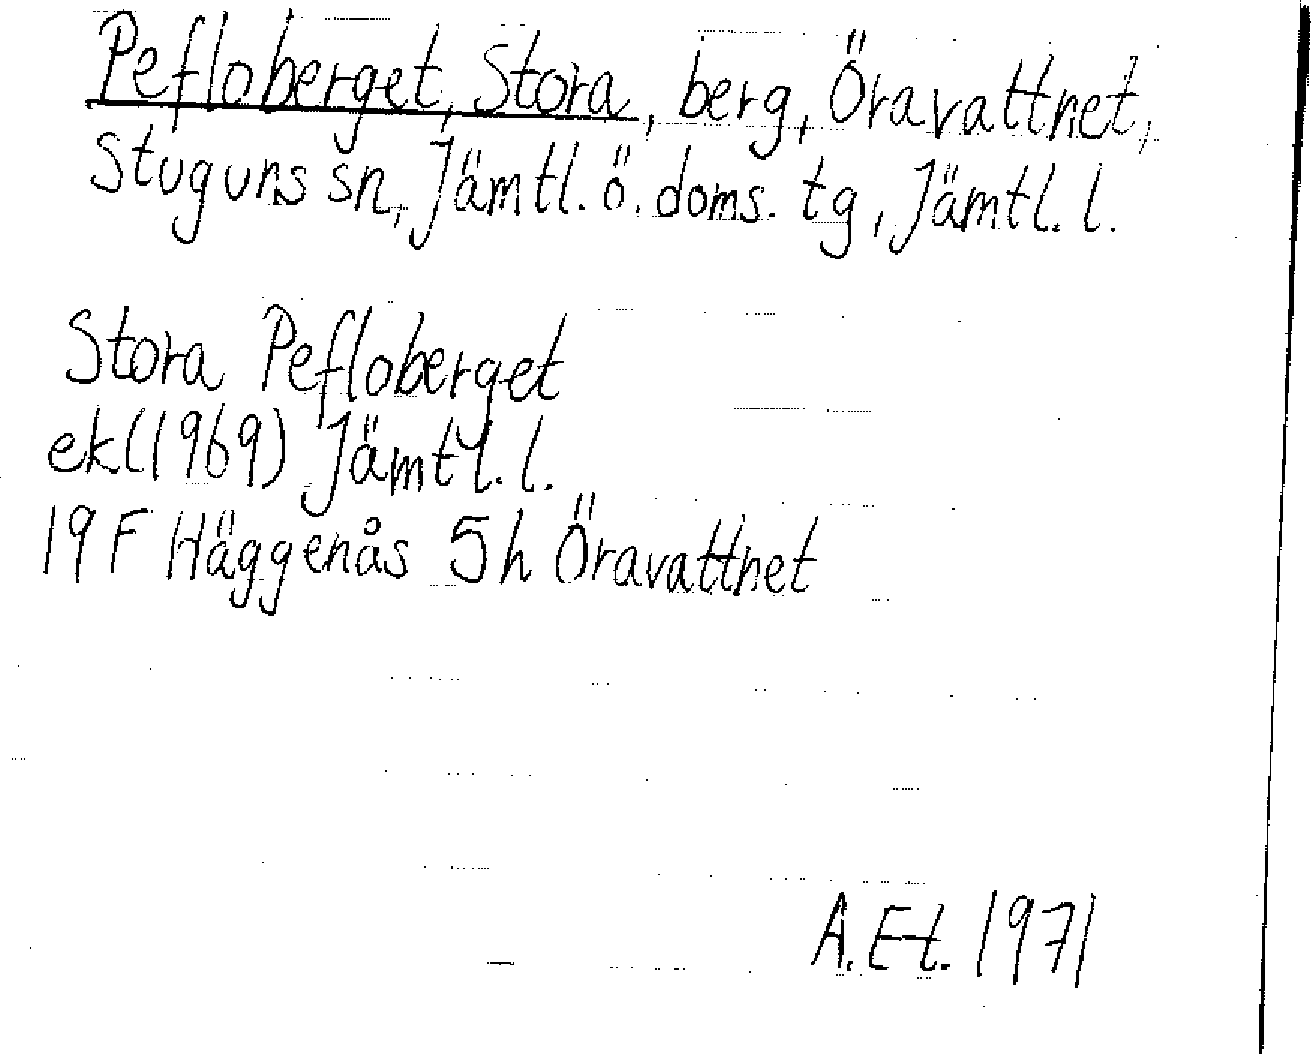 Pefloberget, Stora, berg, Öravattnet,
Stuguns sn, Jämtl. ö. doms. tg, Jämtl. l.
Stora Pefloberget
ek (1969) Jämtl. l.
19 F Häggenås 5h Öravattnet
A. E-t. 1971